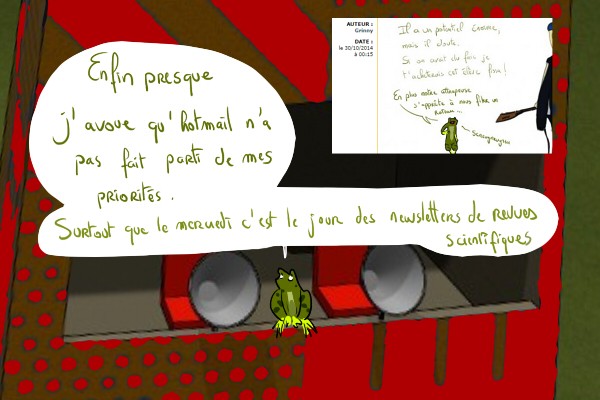 Enfin presque
j'avoue qu'hotmail n'a
pas fait parti de mes
priorités.
Surtout que le mercredi c'est le jour des newsletters de revues
scientifiques
AUTEUR :
Grinny
DATE :
le 30/10/2014
à 00:15
Il a un potentiel énorme,
mais il doute.
Si on avait du fois je
t'achèterais cet être fini!
En plus notre attrapeuse
s'apprête à nous filer un